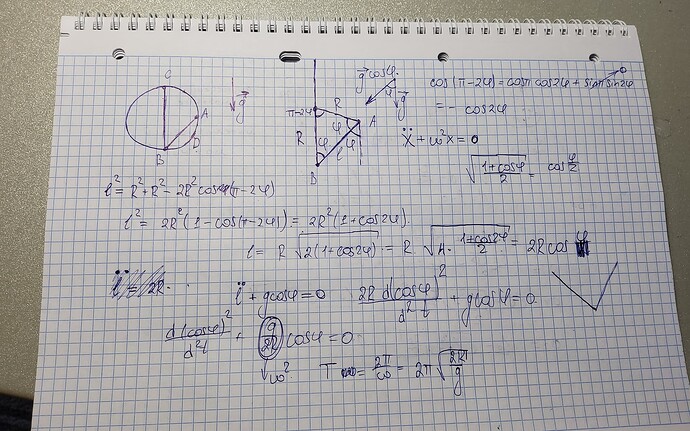 C
A
D
B
g⃗
π-2φ
R
R
φ
φ
φ
l
A
B
g⃗ cosφ
φ
g⃗
cos(π-2φ) = cosπ cos2φ + sinπ sin2φ → 0
= - cos2φ
ẍ + ω²x = 0
√((1+cosφ)/2) = cos φ/2
l² = R² + R² - 2R² cos(π-2φ)
l² = 2R²(1-cos(π-2φ)) = 2R²(1+cos2φ).
l = R √(2(1+cos2φ)) = R √(4·(1+cos2φ)/2) = 2R cos φ
l̈ + g cosφ = 0
2R d(cosφ)²/d²t + g cosφ = 0
d(cosφ)²/d²t + g/2R cosφ = 0
ω²
T = 2π/ω = 2π √(2R/g)